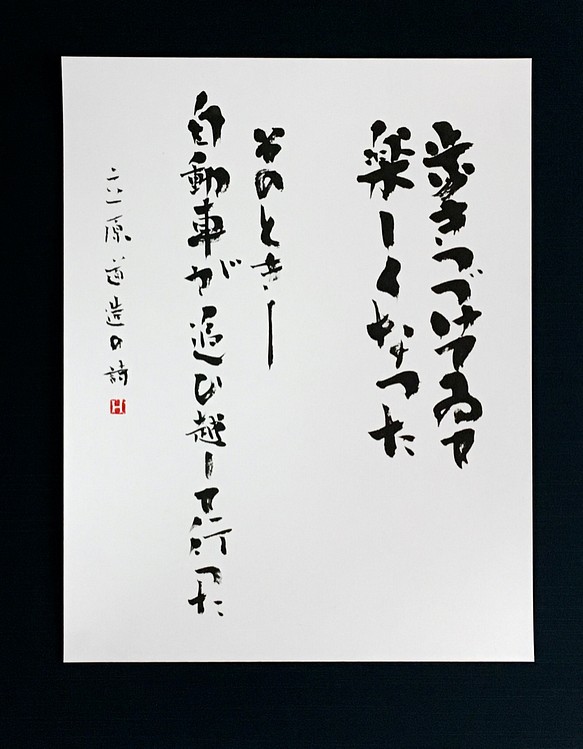 歩きつづけてゐて
楽しくなつた
そのとき—
自動車が追ひ越して行つた
立原道造の詩
H